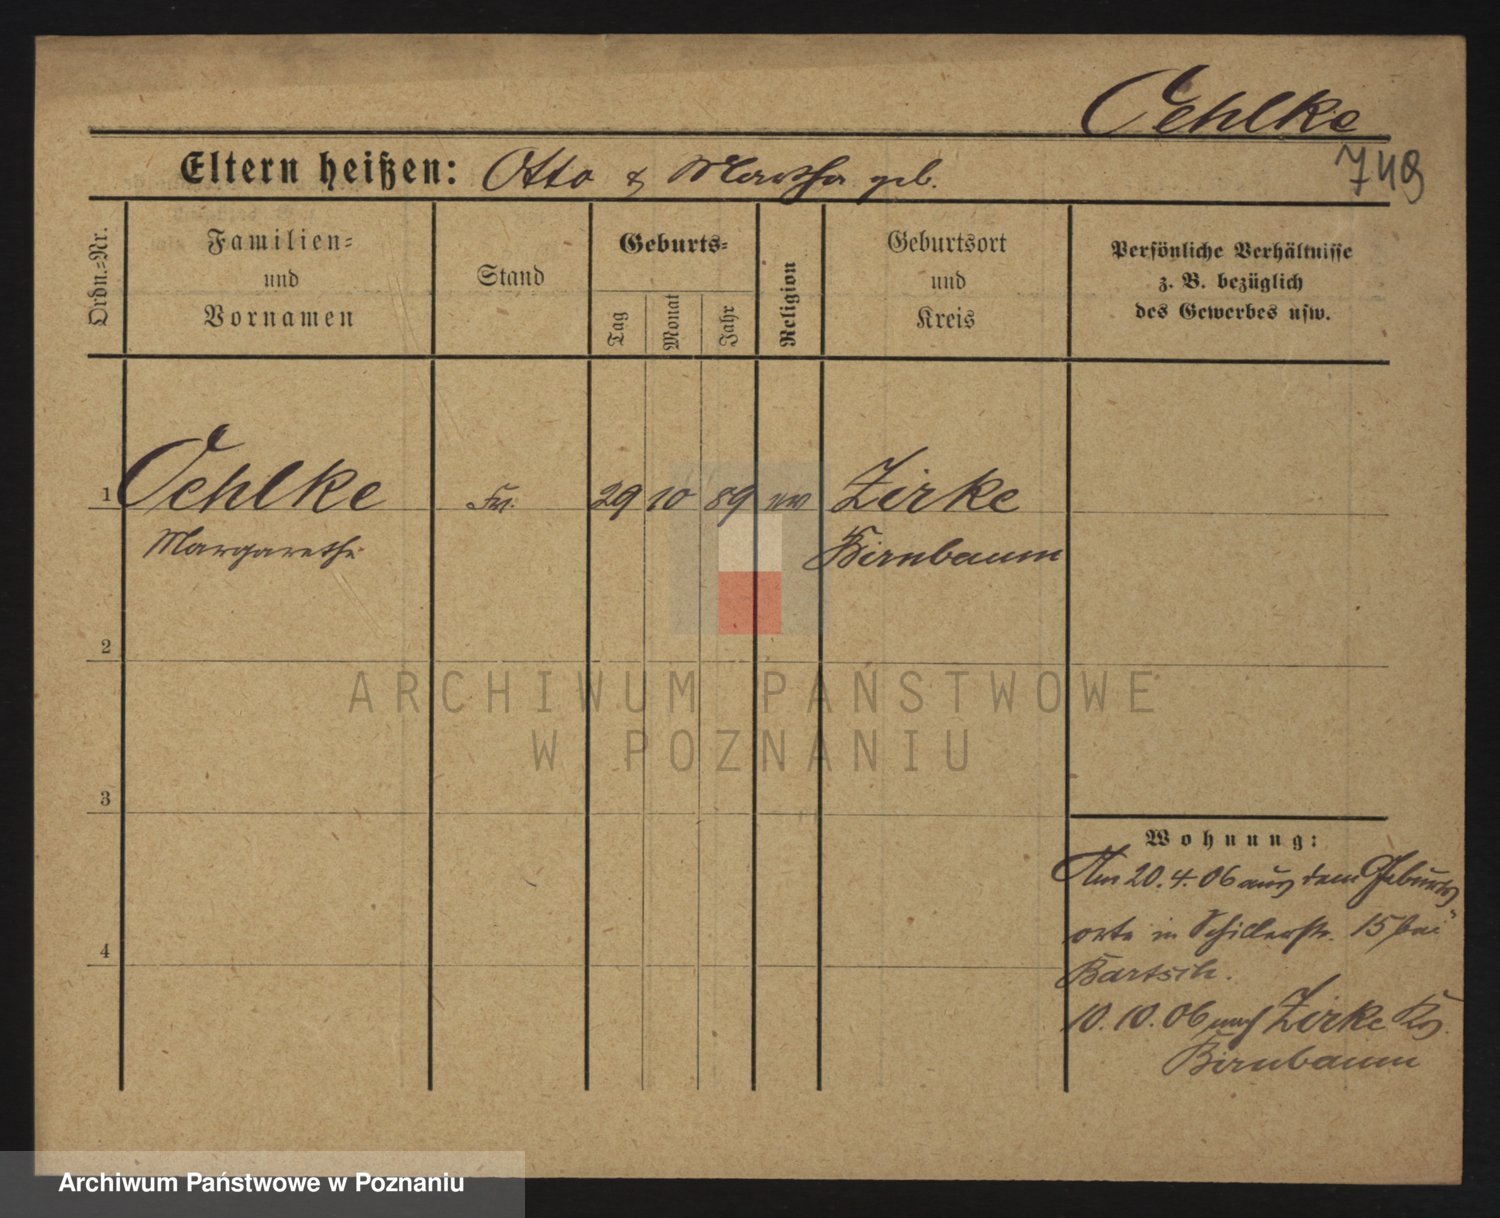 Oehlke
749
Eltern heißen: Otto & Martha geb.
Ordn.-Nr.
Familien-
und
Vornamen
Stand
Geburts-
Tag
Monat
Jahr
Religion
Geburtsort
und
Kreis
Persönliche Verhältnisse
z. B. bezüglich
des Gewerbes usw.
1 Oehlke 29 10 89 ev Zirke
Margarethe Birnbaum
2
3
4
Wohnung:
Am 20.4.06 aus dem Geburts
orte in Schillerstr. 15 bei
Bartsch.
10.10.06 nach Zirke Krs.
Birnbaum
ARCHIWUM PAŃSTWOWE
W POZNANIU
Archiwum Państwowe w Poznaniu